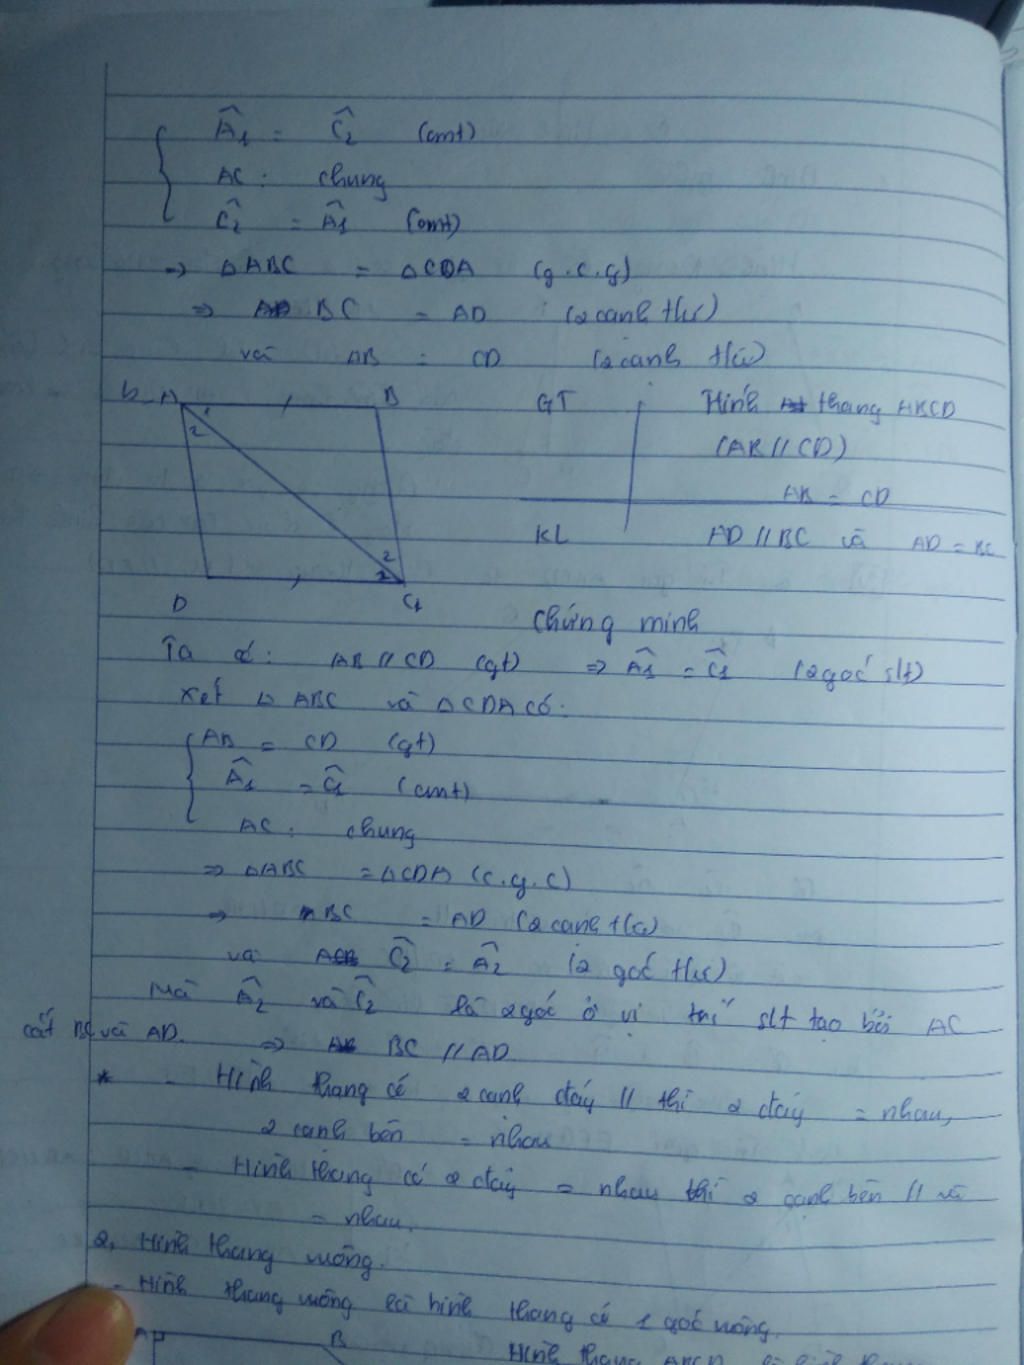 Â1 = Ĉ2 (cmt)
AC : chung
Ĉ2 = Â1 (cmt)
=> △ABC = △CDA (g.c.g)
=> BC = AD (2 cạnh t/ư)
và AB = CD (2 cạnh t/ư)
b, A B GT Hình thang ABCD
1 2 (AB // CD)
AB = CD
KL AD // BC và AD = BC
2 2
D C1
Chứng minh
Ta có: AB // CD (gt) => Â1 = Ĉ1 (2 góc slt)
Xét △ ABC và △CDA có:
AB = CD (gt)
Â1 = Ĉ1 (cmt)
AC : chung
=> △ABC = △CDA (c.g.c)
=> BC = AD (2 cạnh t/ư)
và Ĉ2 = Â2 (2 góc t/ư)
Mà Â2 và Ĉ2 là 2 góc ở vị trí slt tạo bởi AC
cắt BC và AD. => BC // AD
* - Hình thang có 2 cạnh đáy // thì 2 đáy = nhau,
2 cạnh bên = nhau
- Hình thang có 2 đáy = nhau thì 2 cạnh bên // và
= nhau.
2, Hình thang vuông.
- Hình thang vuông là hình thang có 1 góc vuông.
A B
Hình thang ABCD